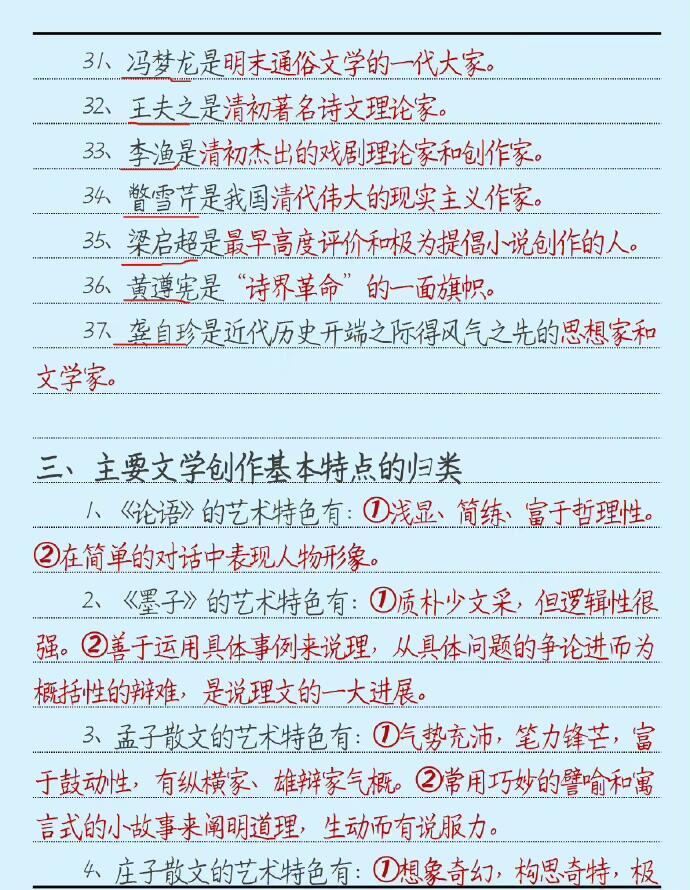 31、冯梦龙是明末通俗文学的一代大家。
32、王夫之是清初著名诗文理论家。
33、李渔是清初杰出的戏剧理论家和创作家。
34、瞥雪芹是我国清代伟大的现实主义作家。
35、梁启超是最早高度评价和极为提倡小说创作的人。
36、黄遵宪是“诗界革命”的一面旗帜。
37、龚自珍是近代历史开端之际得风气之先的思想家和
文学家。
三、主要文学创作基本特点的归类
1、《论语》的艺术特色有：①浅显、简练、富于哲理性。
②在简单的对话中表现人物形象。
2、《墨子》的艺术特色有：①质朴少文采，但逻辑性很
强。②善于运用具体事例来说理，从具体问题的争论进而为
概括性的辩难，是说理文的一大进展。
3、孟子散文的艺术特色有：①气势充沛，笔力锋芒，富
于鼓动性，有纵横家、雄辩家气概。②常用巧妙的譬喻和寓
言式的小故事来阐明道理，生动而有说服力。
4、庄子散文的艺术特色有：①想象奇幻，构思奇特，极